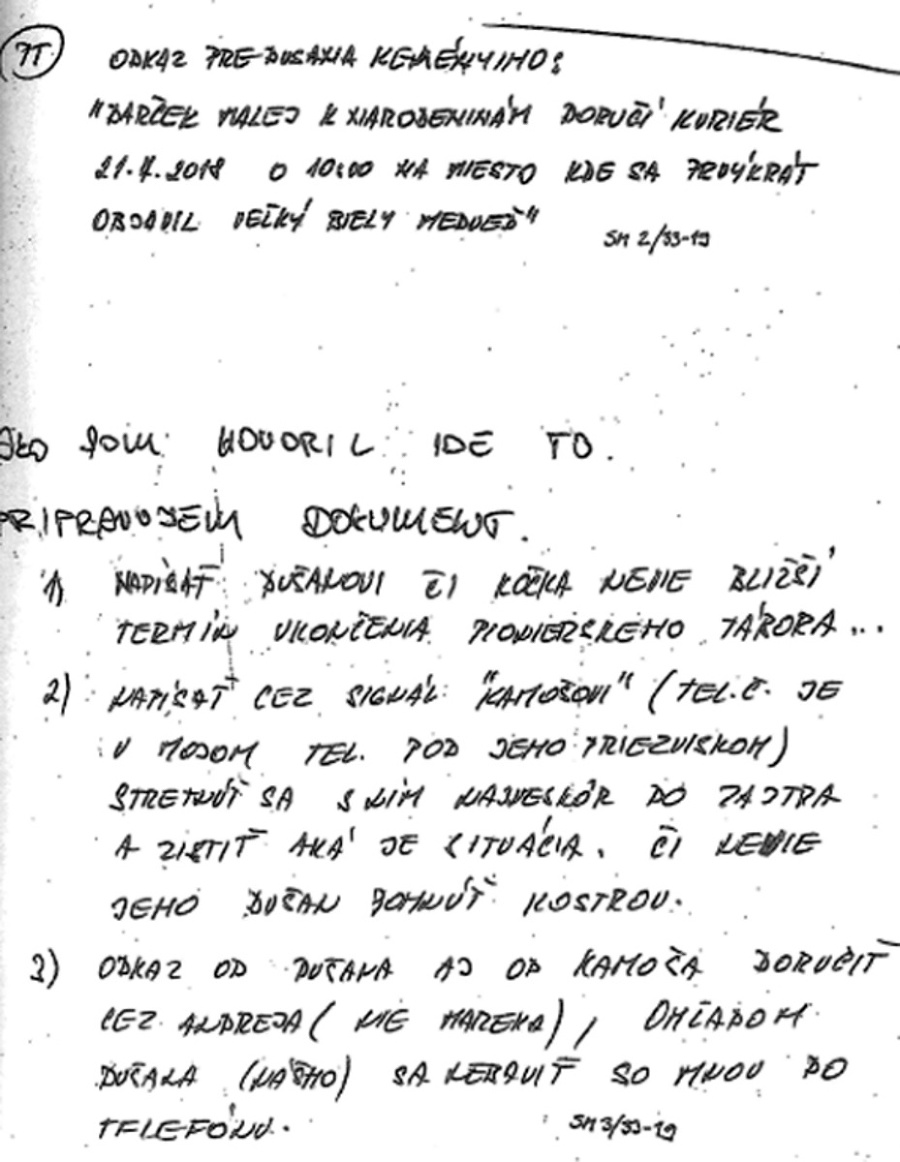 ODKAZ PRE DUSANA KEMÉNYIHO:
"DARČEK MALEJ K NARODENINÁM DORUČÍ KURIÉR
21.4.2018 O 10:00 NA MIESTO KDE SA PRVÝKRÁT
OBJAVIL VEĽKÝ BIELY MEDVEĎ"
SM 2/33-19
AKO SOM HOVORIL IDE TO.
PRIPRAVUJEM DOKUMENT.
1) NAPÍSAŤ DUŠANOVI ČI KOČKA NEVIE BLIŽŠÍ
TERMÍN UKONČENIA PIONIERSKEHO TÁBORA...
2) NAPÍSAŤ CEZ SIGNÁL "KAMOŠOVI" (TEL.Č. JE
V MOJOM TEL. POD JEHO PRIEZVISKOM)
STRETNÚŤ SA S NÍM NAJNESKÔR DO ZAJTRA
A ZISTIŤ AKÁ JE SITUÁCIA. ČI NEVIE
JEHO DUŠAN POHNÚŤ KOSTROU.
3) ODKAZ OD DUŠANA AJ OD KAMOŠA DORUČIŤ
CEZ ANDREJA (NIE MAREKA), OHĽADOM
DUŠANA (NÁŠHO) SA NEBAVIŤ SO MNOU DO
TELEFÓNU.
SM 3/33-19